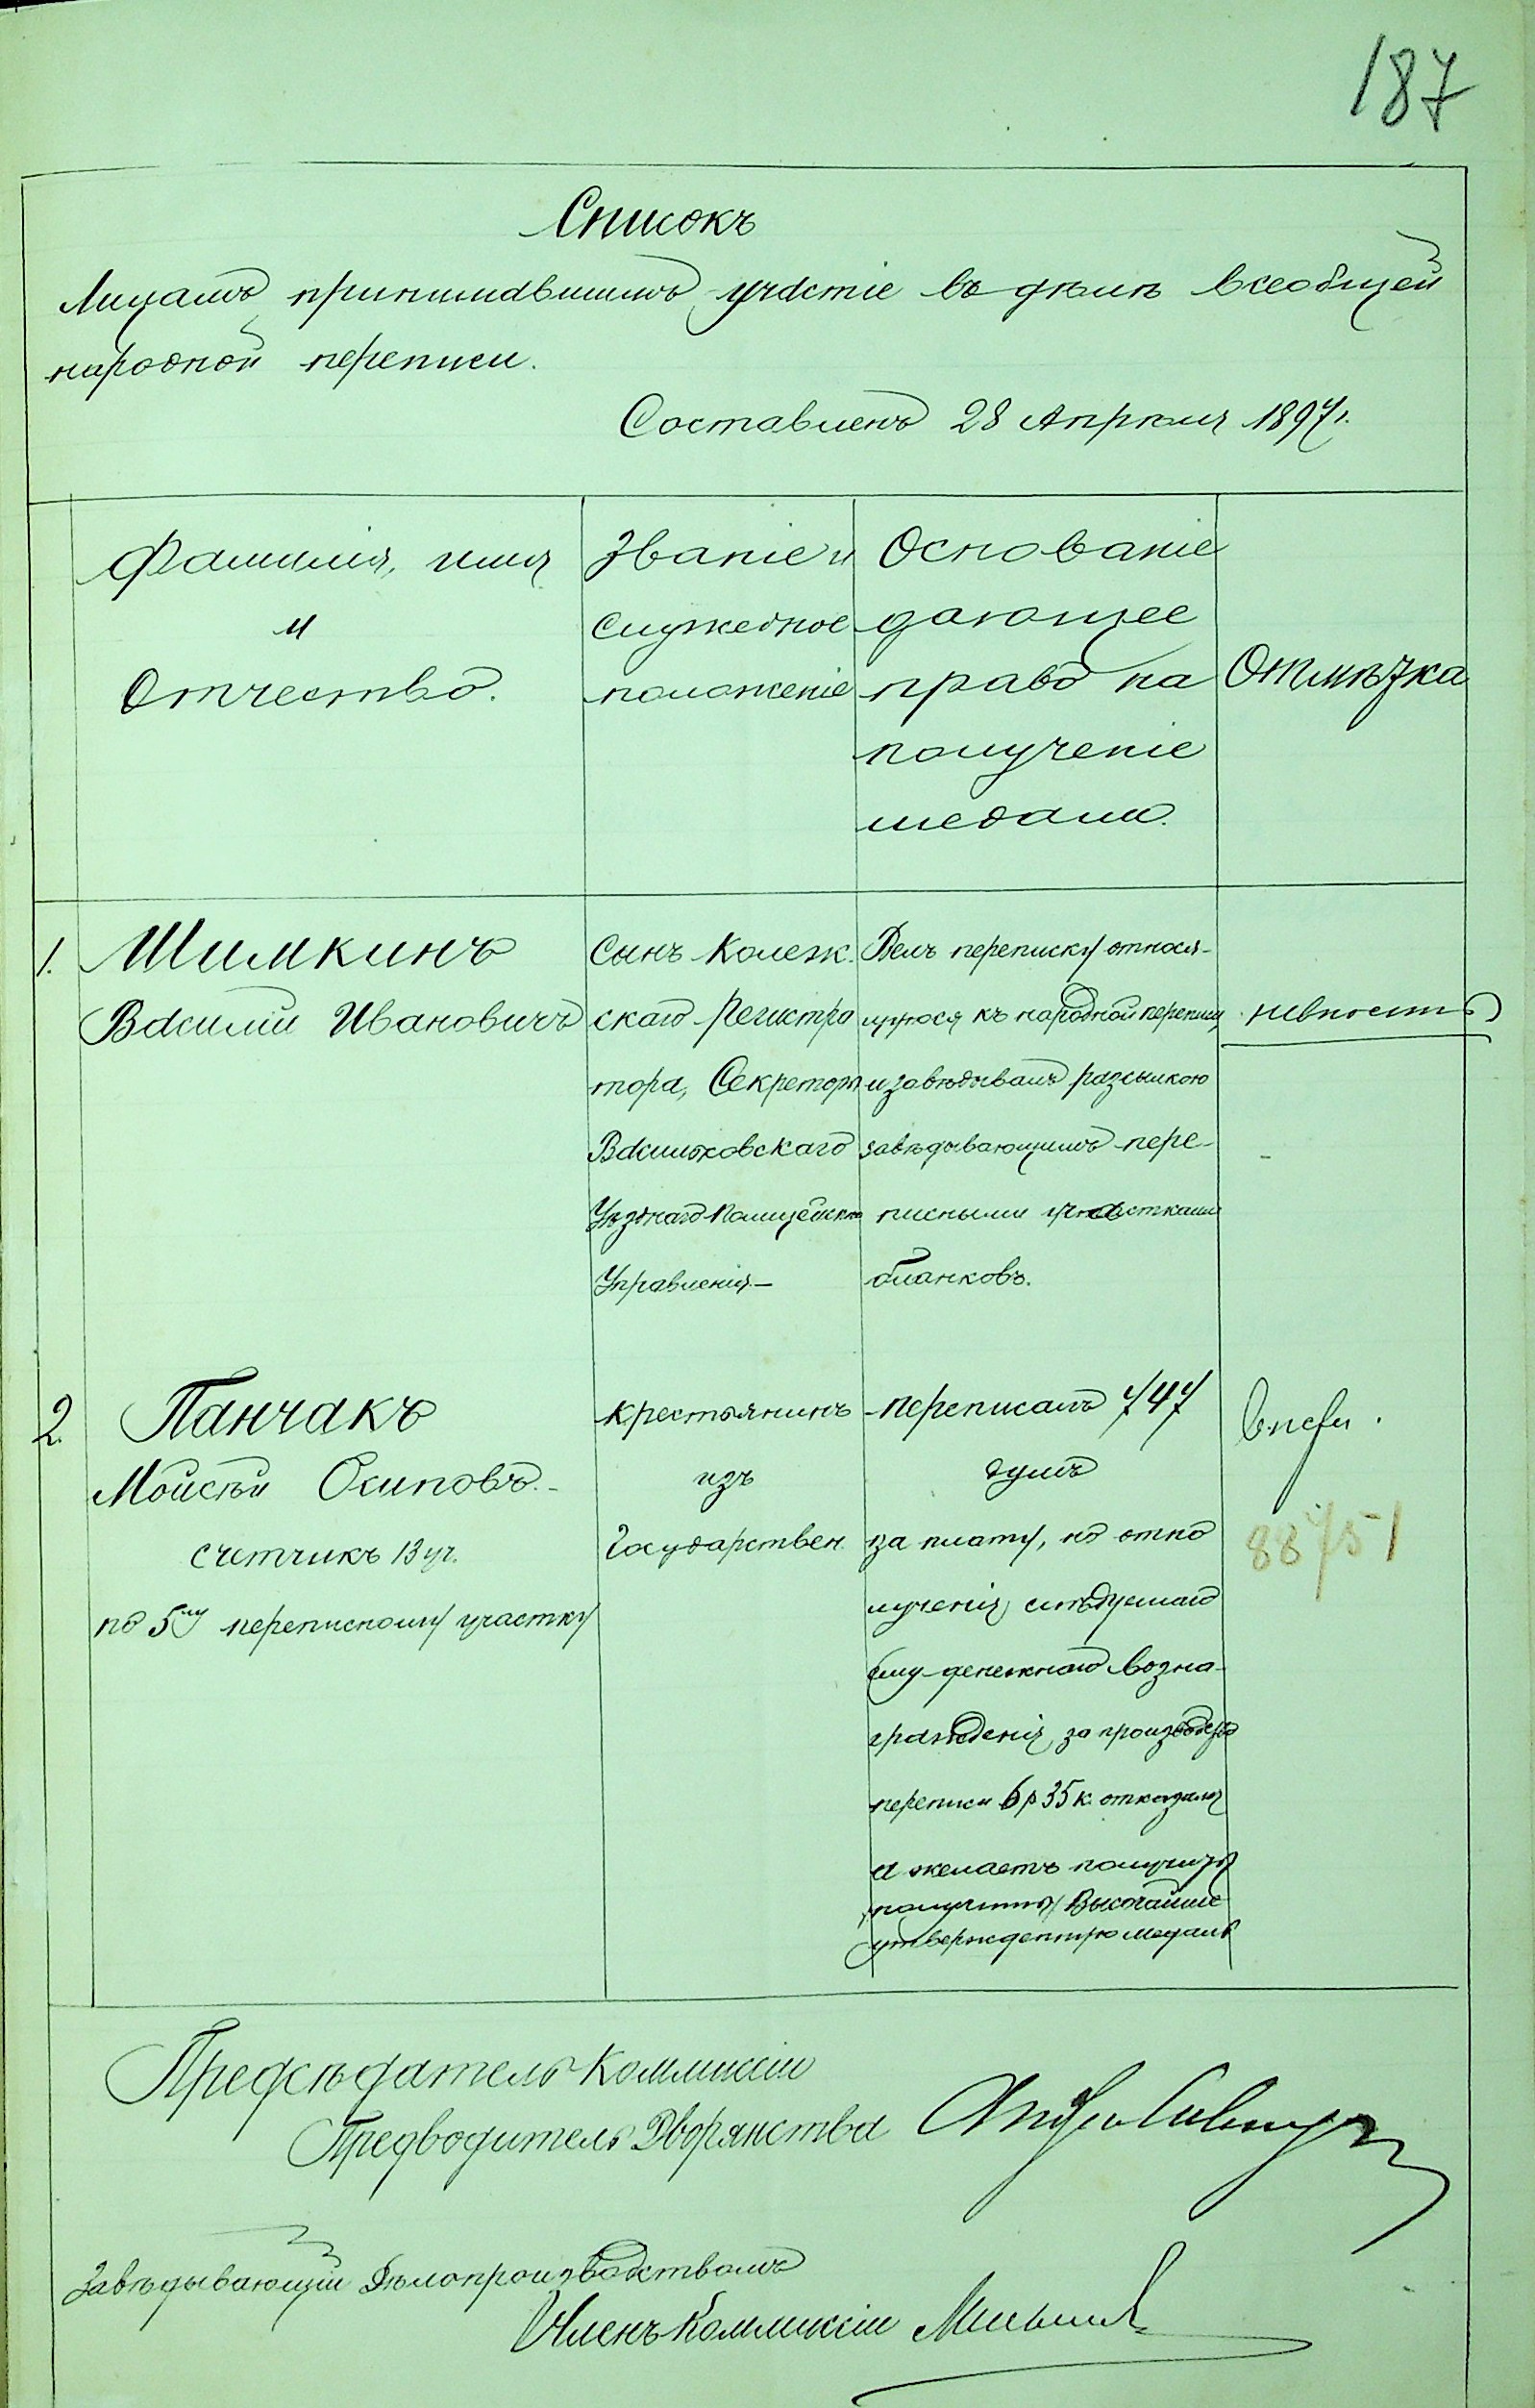 187
Списокъ
Лицамъ принимавшимъ участіе въ дѣлѣ всеобщей
народной переписи.
Составленъ 28 Апрѣля 1897 г.
Фамилія, имя
и
Отчество.
Званіе и
служебное
положеніе
Основаніе
дающее
право на
полученіе
медали.
Отмѣтка
1.
Шимкинъ
Василій Ивановичъ
Сынъ Колеж.
скаго Регистра
тора, Секретарь
Васильковскаго
Уѣзднаго Полицейскаго
Управленія.—
Велъ переписку относя-
щуюся къ народной переписи
и завѣдывалъ разсылкою
завѣдывающимъ пере-
писными участками
бланковъ.
2.
Панчакъ
Мойсѣй Осиповъ.-
счетчикъ 13 уч.
по 5му переписному участку
крестьянинъ
изъ
Государствен.
переписалъ 747
душъ
за плату, но отпо
лученія слѣдуемаго
ему денежнаго возна-
гражденія за производство
переписи 6 р 35 к. отказался
а желаетъ получить
получить Высочайше
утвержденную медаль
88751
Предсѣдатель Коммиссіи
Предводитель Дворянства
Завѣдывающій Дѣлопроизводствомъ
Членъ Коммиссіи